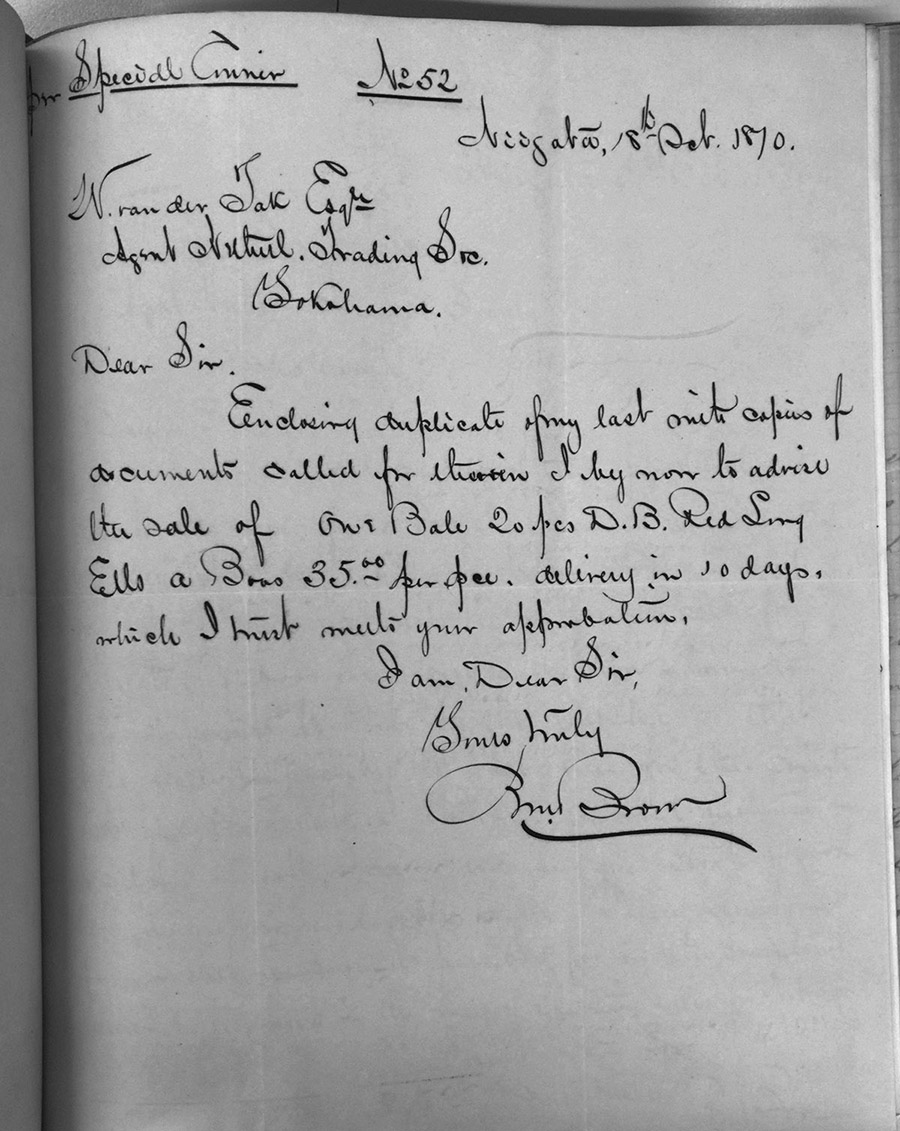 per Special Courier No 52
Niigata, 18th Oct. 1870.
W. van der Tak Esqre
Agent Netherl. Trading Soc.
Yokohama.
Dear Sir.
Enclosing duplicate of my last with copies of
documents called for therein I beg now to advise
the sale of One Bale 20 pcs D.B. Red Long
Ells a Boos 35.00 per pce. delivery in 10 days,
which I trust meets your approbation.
I am, Dear Sir,
Yours truly